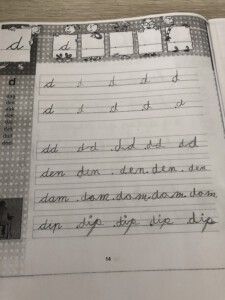 d d
d d d d d
d d d d d
d
dd dd dd dd dd
den den den den den
dam dam dam dam dam
dip dip dip dip dip
14